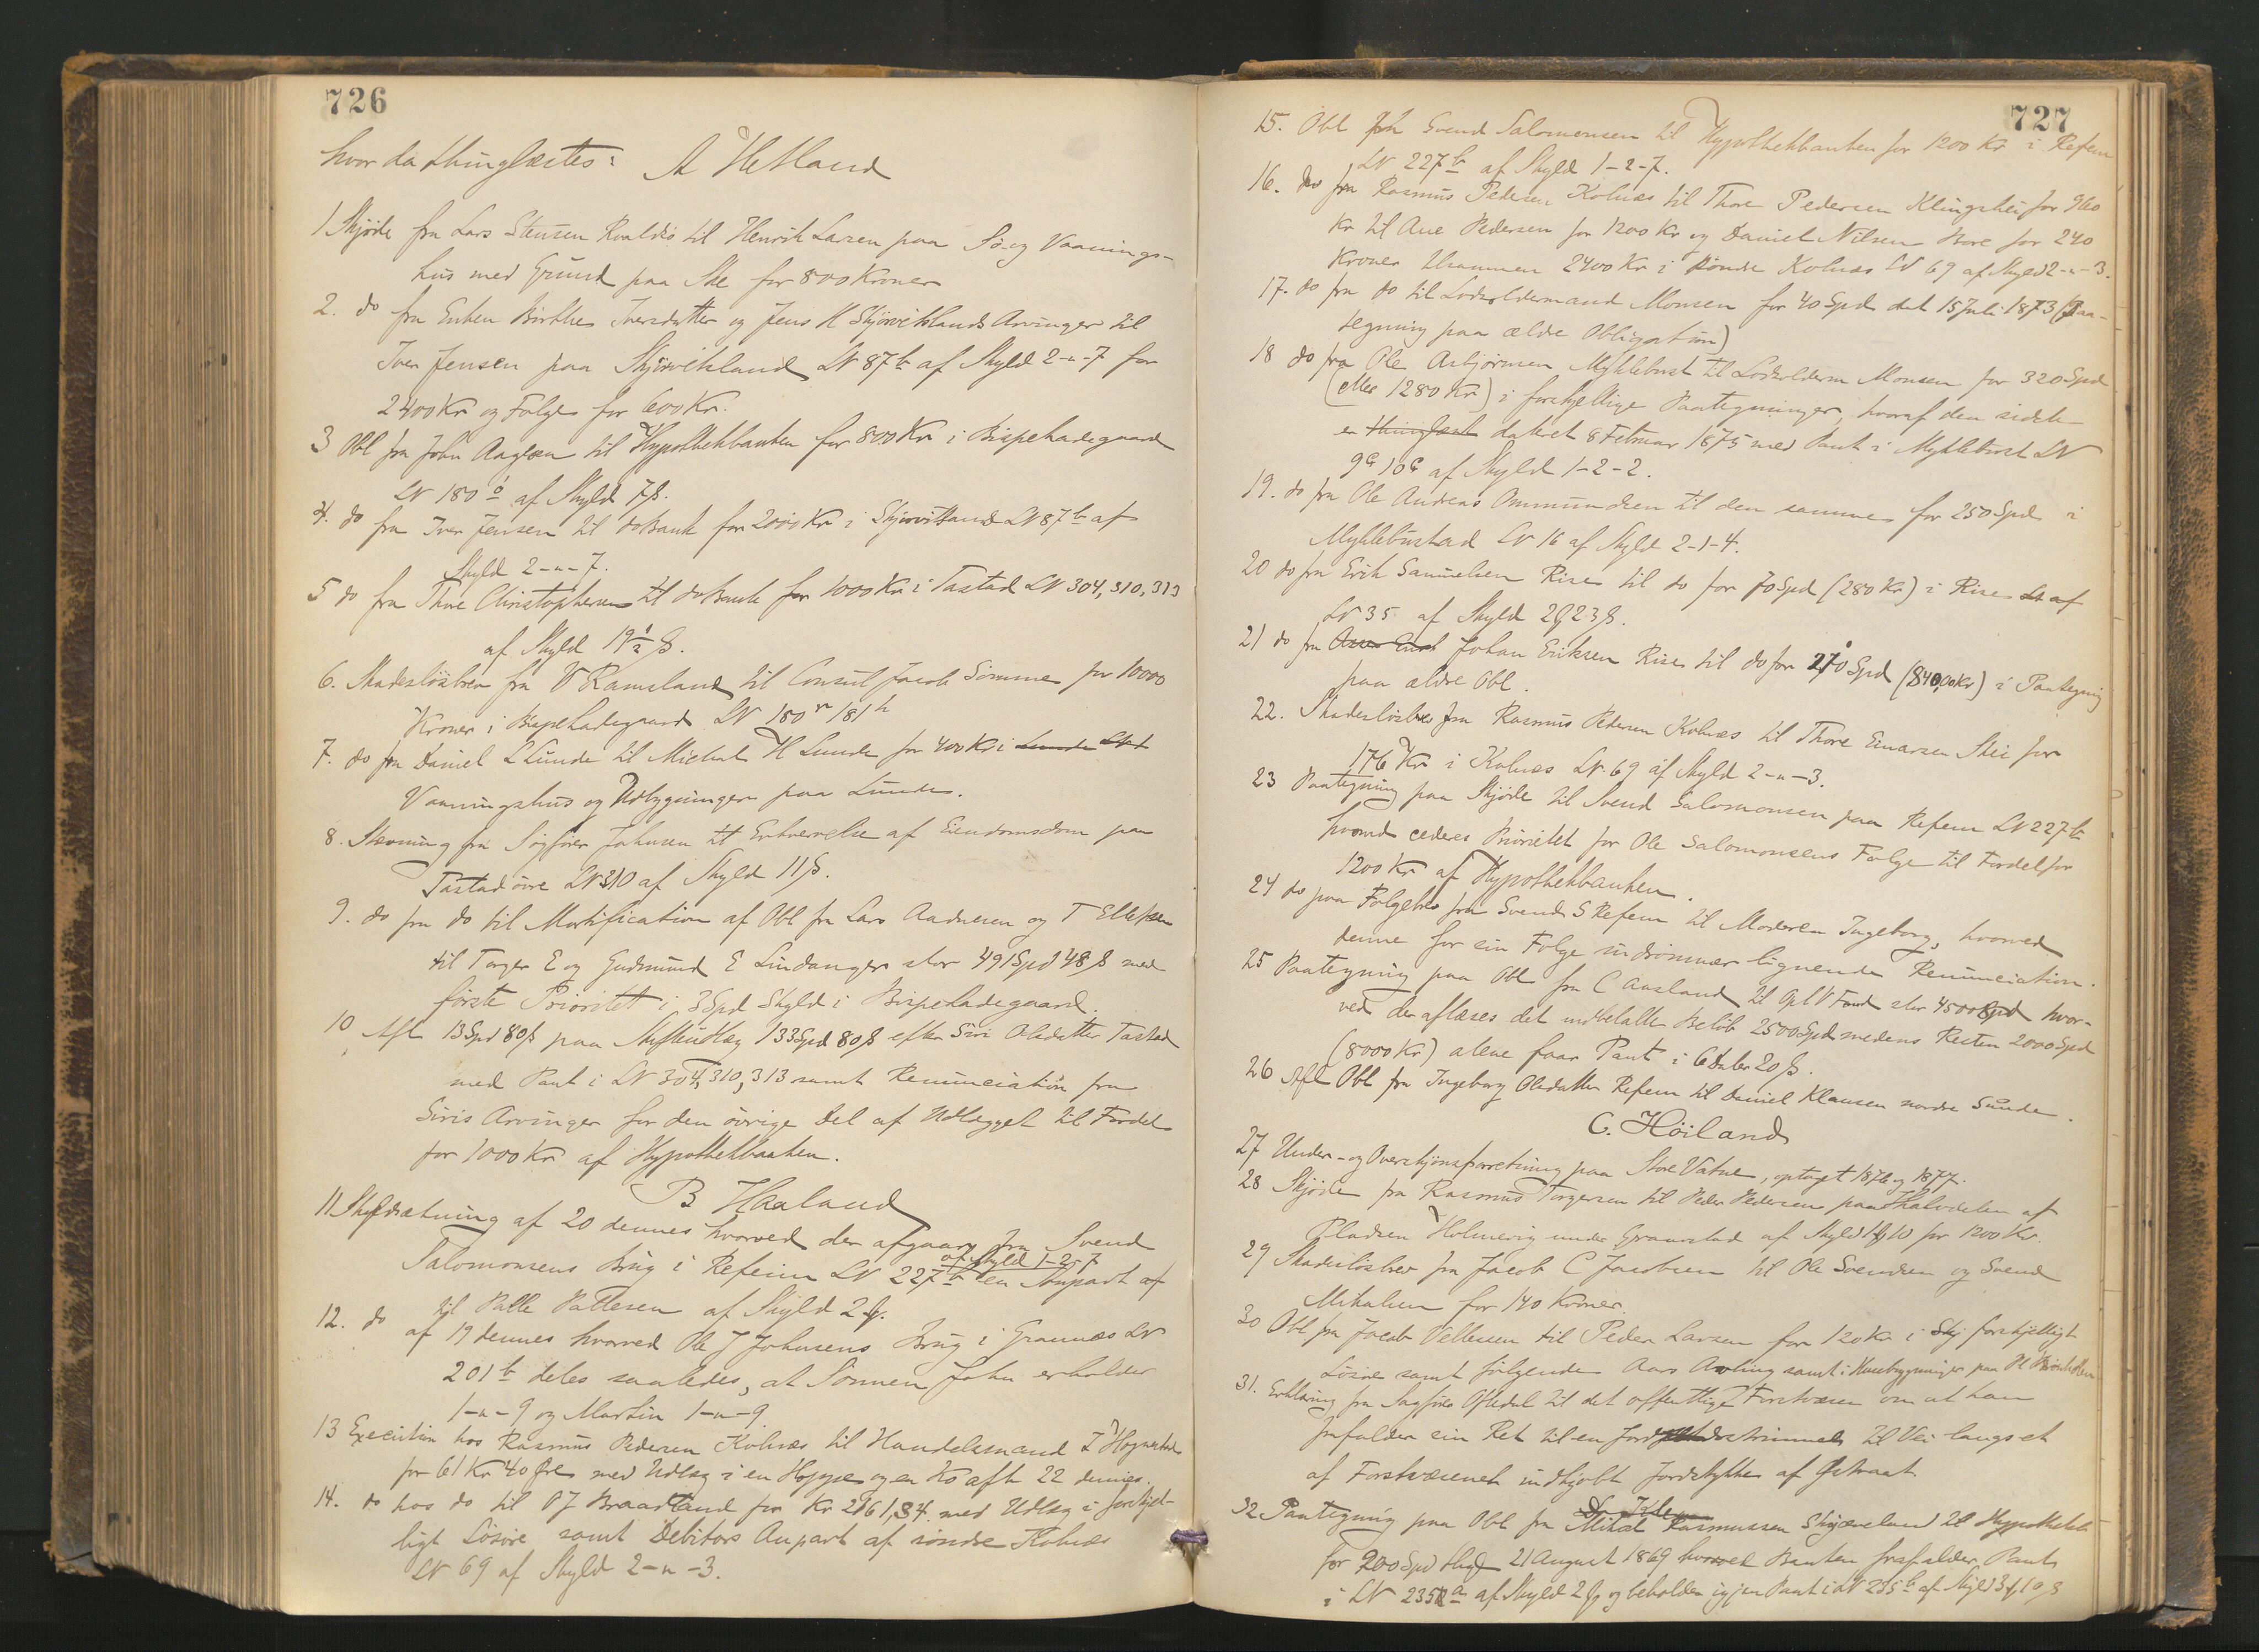 726
hvor da thinglæstes: A Hetland
1 Skjöde fra Lars Stensen Roaldsö til Henrik Larsen paa Sö- og Vaanings-
hus med Grund paa Ske for 800 Kroner
2. do fra Enken Birthe Iversdatter og Jens H Skjörvikslands Arvinger til
Iver Jensen paa Skjörviksland LN 87b af Skyld 2-"-7 for
2400 Kr og Folge for 600 Kr.
3 Obl fra John Aaglsen til Hypothekbanken for 800 Kr i Bispeladegaard
LN 180ö af Skyld 7ß.
4. do fra Iver Jensen til do Bank for 2000 Kr i Skjörviksland LN 87b af
Skyld 2-"-7.
5 do fra Thore Christophersen til do Bank for 1000 Kr i Tastad LN 304, 310, 313
af Skyld 19½ ß.
6. Skadeslösbrev fra V Ramsland til Consul Jacob Sömme for 10000
Kroner i Bispeladegaard LN 180n 181h
7. do fra Daniel L Lunde til Michal H Lunde for 400 Kr i Lunde
Vaaningshus og Udbygninger paa Lunde.
8. Stevning fra Sagförer Johnsen til Erhvervelse af Eiendomsdom paa
Tastad övre LN 310 af Skyld 11ß.
9. do fra do til Mortification af Obl fra Lars Aadnesen og T Ellefsen
til Torger E og Gudmund E Lindanger stor 491 Spd 48 ß med
förste Prioritet i 3 Spd Skyld i Bispeladegaard.
10 Afl 13 Spd 80ß paa Skifteudlæg 133 Spd 80ß efter Siri Olsdatter Tastad
med Pant i LN 304, 310, 313 samt Renunciation fra
Siris Arvinger for den övrige Del af Udlægget til Fordel
for 1000 Kr af Hypothekbanken.
B Haaland
11 Skyldsætning af 20 dennes hvorved der afgaar fra Svend
Salomonsens Brug i Refeim LN 227b af Skyld 1-2-7 en Anpart af
til Palle Pallesen af Skyld 2
12. do af 19 dennes hvorved Ole J Johnsens Brug i Grannes LN
201b deles saaledes, at Sönnen John erholder
1-"-9 og Martin 1-"-9
13 Execution hos Rasmus Pedersen Kolnes til Handelsmand L Hognestad
for 61 Kr 40 Öre med Udlæg i en Hoppe og en Ko afh 22 dennes.
14. do hos do til O J Braadland for Kr 2161,34 med Udlæg i forskjel-
ligt Lösöre samt Debitors Anpart af söndre Kolnes
LN 69 af Skyld 2-"-3.
727
15. Obl fra Svend Salomonsen til Hypothekbanken for 1200 Kr i Refeim
LN 227b af Skyld 1-2-7.
16. do fra Rasmus Pedersen Kolnes til Thore Pedersen Klingshei for 960
Kr til Ane Pedersen for 1200 Kr og Daniel Nilsen Bore for 240
Kroner tilsammen 2400 Kr i söndre Kolnes LN 69 af Skyld 2-"-3.
17. do fra do til Lodsoldermand Monsen for 40 Spd dat 15 Juli 1873 (Paa-
tegning paa ældre Obligation)
18 do fra Ole Asbjörnsen Myklebust til Lodsolderm Monsen for 320 Spd
(eller 1280 Kr) i forskjellige Paategninger, hvoraf den sidste
er thinglæst dateret 8 Februar 1875 med Pant i Myklebust LN
9a 10a af Skyld 1-2-2.
19. do fra Ole Andreas Ommundsen til den samme for 250 Spd i
Myklebustad LN 16 af Skyld 2-1-4.
20 do fra Erik Samuelsen Rise til do for 70 Spd (280 Kr) i Rise LN af
LN 35 af Skyld 2 23ß.
21 do fra Johan Eriksen Rise til do for 210 Spd (840,00 Kr) i Paategning
paa ældre Obl.
22. Skadeslösbrev fra Rasmus Pedersen Kolnes til Thore Einarsen Skei for
176 Kr i Kolnes LN 69 af Skyld 2-"-3.
23 Paategning paa Skjöde til Svend Salomonsen paa Refeim LN 227b
hvorved cederes Prioritet for Ole Salomonsens Folge til Fordel for
1200 Kr af Hypothekbanken.
24 do paa Folgebrev fra Svend S Refeim til Moderen Ingeborg, hvorved
denne for sin Folge indrömmer lignende Renunciation.
25 Paategning paa Obl fra C Aasland til Opl V Fond stor 4500 Spd hvor-
ved der aflæses det indbetalte Belöb 2500 Spd medens Resten 2000 Spd
(8000 Kr) alene faar Pant i 6 Daler 20ß.
26 Afl Obl fra Ingeborg Olsdatter Refeim til Daniel Klausen nordre Sunde.
C. Höiland
27 Under- og Overskjönsforretning paa Store Vatne, optaget 1876 og 1877.
28 Skjöde fra Rasmus Torgersen til Peder Pedersen paa Halvdelen af
Pladsen Holmevig under Gramstad af Skyld 10 for 1200 Kr.
29 Skadeslösbrev fra Jacob C Jacobsen til Ole Svendsen og Svend
Mikalsen for 140 Kroner.
30 Obl fra Jacob Vellesen til Peder Larsen for 120 Kr i Skj forskjelligt
Lösöre samt fölgende Aars Avling samt i Husebygninger paa Pl
31. Erklæring fra Sagförer Oftedal til det offentlige Forstvæsen om at han
frafalder sin Ret til en Jordstrimmel til Vei langs et
af Forstvæsenet indkjöbt Jordstykke af Östraat
32 Paategning paa Obl fra Mikal Rasmussen Skjæveland til Hypothekb
for 200 Spd thgl 21 August 1869 hvorved Banken frafalder Pant
i LN 235a af Skyld 2 og beholder igjen Pant i LN 235b af Skyld 3 10ß